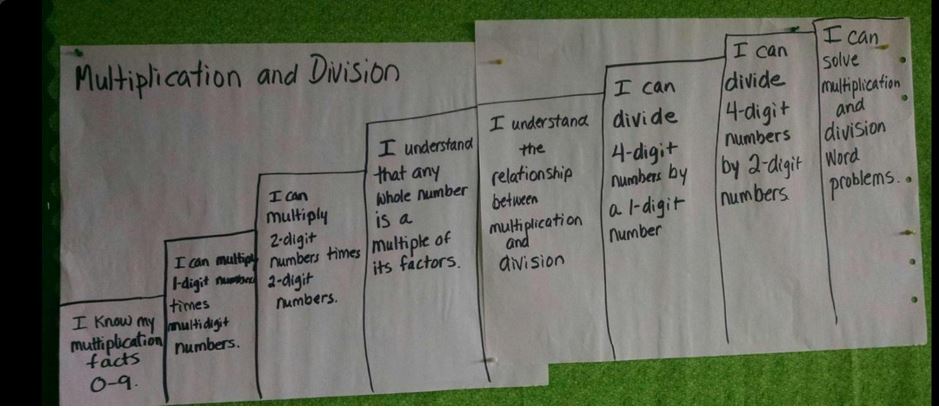 Multiplication and Division
I know my
multiplication
facts
0-9.
I can multiply
1-digit numbers
times
multidigit
numbers.
I can
multiply
2-digit
numbers times
2-digit
numbers.
I understand
that any
whole number
is a
multiple of
its factors.
I understand
the
relationship
between
multiplication
and
division
I can
divide
4-digit
numbers by
a 1-digit
number
I can
divide
4-digit
numbers
by 2-digit
numbers.
I can
solve
multiplication
and
division
word
problems.